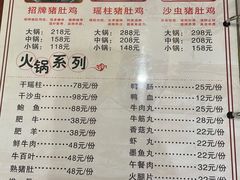 招牌猪肚鸡 瑶柱猪肚鸡 沙虫猪肚鸡
大锅：218元 大锅：288元 大锅：298元
中锅：158元 中锅：208元 中锅：208元
小锅：118元 小锅：158元 小锅：168元
火锅系列
干瑶柱 78元/份 鸭肠 25元/份
干沙虫 98元/份 鸭血 12元/份
鲍鱼 68元/份 牛肉丸 28元/份
肥牛 48元/份 牛筋丸 28元/份
肥羊 38元/份 香菇丸 22元/份
鲜牛肉 48元/份 虾丸 32元/份
牛百叶 48元/份 墨鱼丸 32元/份
熟猪肚 午餐肉 22元/份
火腿片